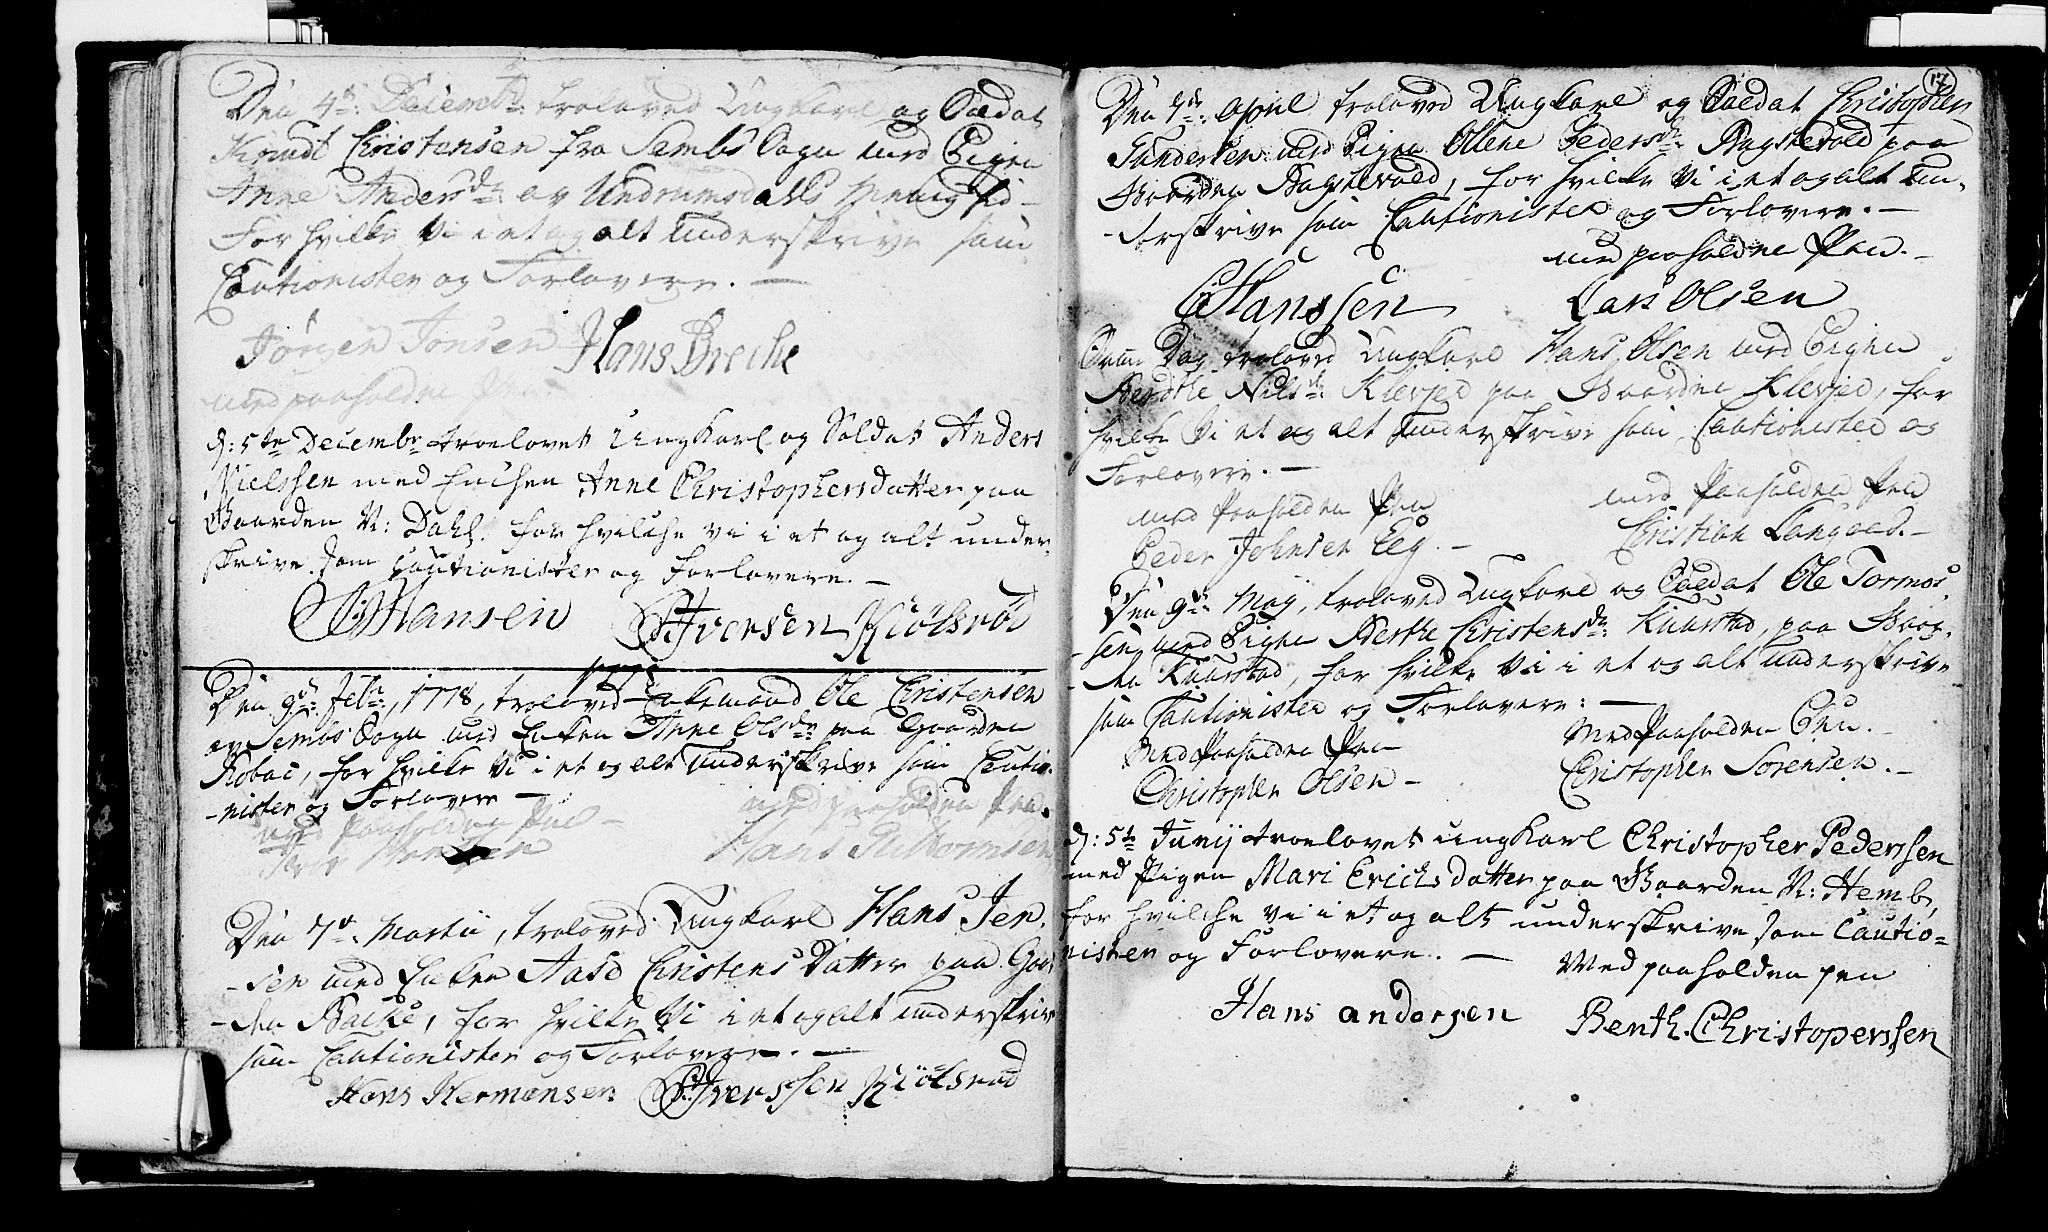 Den 4de: Decembr: troloved Ungkarl og Soldat
Knudt Christensen fra Sembs Sogn med Pigen
Anne Andersdr: av Undrumsdalls Menighed -
For hvilke Vi i et og alt underskrive som
Cautionister og Forlovere. —
Jørgen Jonsen Hans Breche
med paaholden Pen
d: 5te Decembr troelovet Ungkarl og Soldat Anders
Nielssen med Enchen Anne Christophersdatter paa
Gaarden N: Dahl. for hvilche vi i et og alt under-
skrive som Cautionister og Forlovere. —
Hansen Iversen Kiölsröd
1778
Den 9de: Febr:, 1778, troloved Enkemand Ole Christensen
av Sembs Sogn med Enken Anne Olsdr paa Gaarden
Robac, for hvilke Vi i et og alt underskrive som Cautio-
-nister og Forlovere —
med paaholden Pen — med paaholden Pen.
Hans
Den 7de: Martii, troloved Ungkarl Hans Jen-
-sen med Enken Aase Christens Datter paa Gaar-
-den Backe, for hvilke Vi i et og alt underskrive
som Cautionister og Forlovere. —
Hans Hermansen Iverssen Kiölsrød
17
Den 7de: April troloved Ungkarl og Soldat Christopher
Gundersen med Pigen Ollene Pedersdr: Bagstevold paa
Gaarden Bagstevold, for hvilke Vi i et og alt un-
-derskrive som Cautionister og Forlovere. —
med paaholden Pen. —
Hanssen Lars Olsen
Samme Dag troloved Ungkarl Hans Olsen med Pigen
Berthe Nilsdr: Klevjer paa Gaarden Klevjer, for
hvilke Vi et og alt underskrive som Cautionister og
Forlovere. —
med Paaholden Pen med Paaholden Pen
Peder Johnsen Eeg. — Christian Langved. —
Den 9de: Maj, troloved Ungkarl og Soldat Ole Tormos-
-sen med Pigen Berthe Christensdr: Knarstad, paa Gaar-
-den Knarstad, for hvilke Vi i et og alt underskrive
som Cautionister og Forlovere: —
Med Paaholden Pen Med Paaholden Pen. —
Christopher Olsen — Christopher Sørensen. —
d: 5te Junij troelovet ungkarl Christopher Pederssen
med Pigen Mari Erichsdatter paa Gaarden N: Hemb,
for hvilche vi i et og alt underskrive som Cautio=
nister og Forlovere. — Med paaholden pen
Hans andersen Benth. Christoperssen